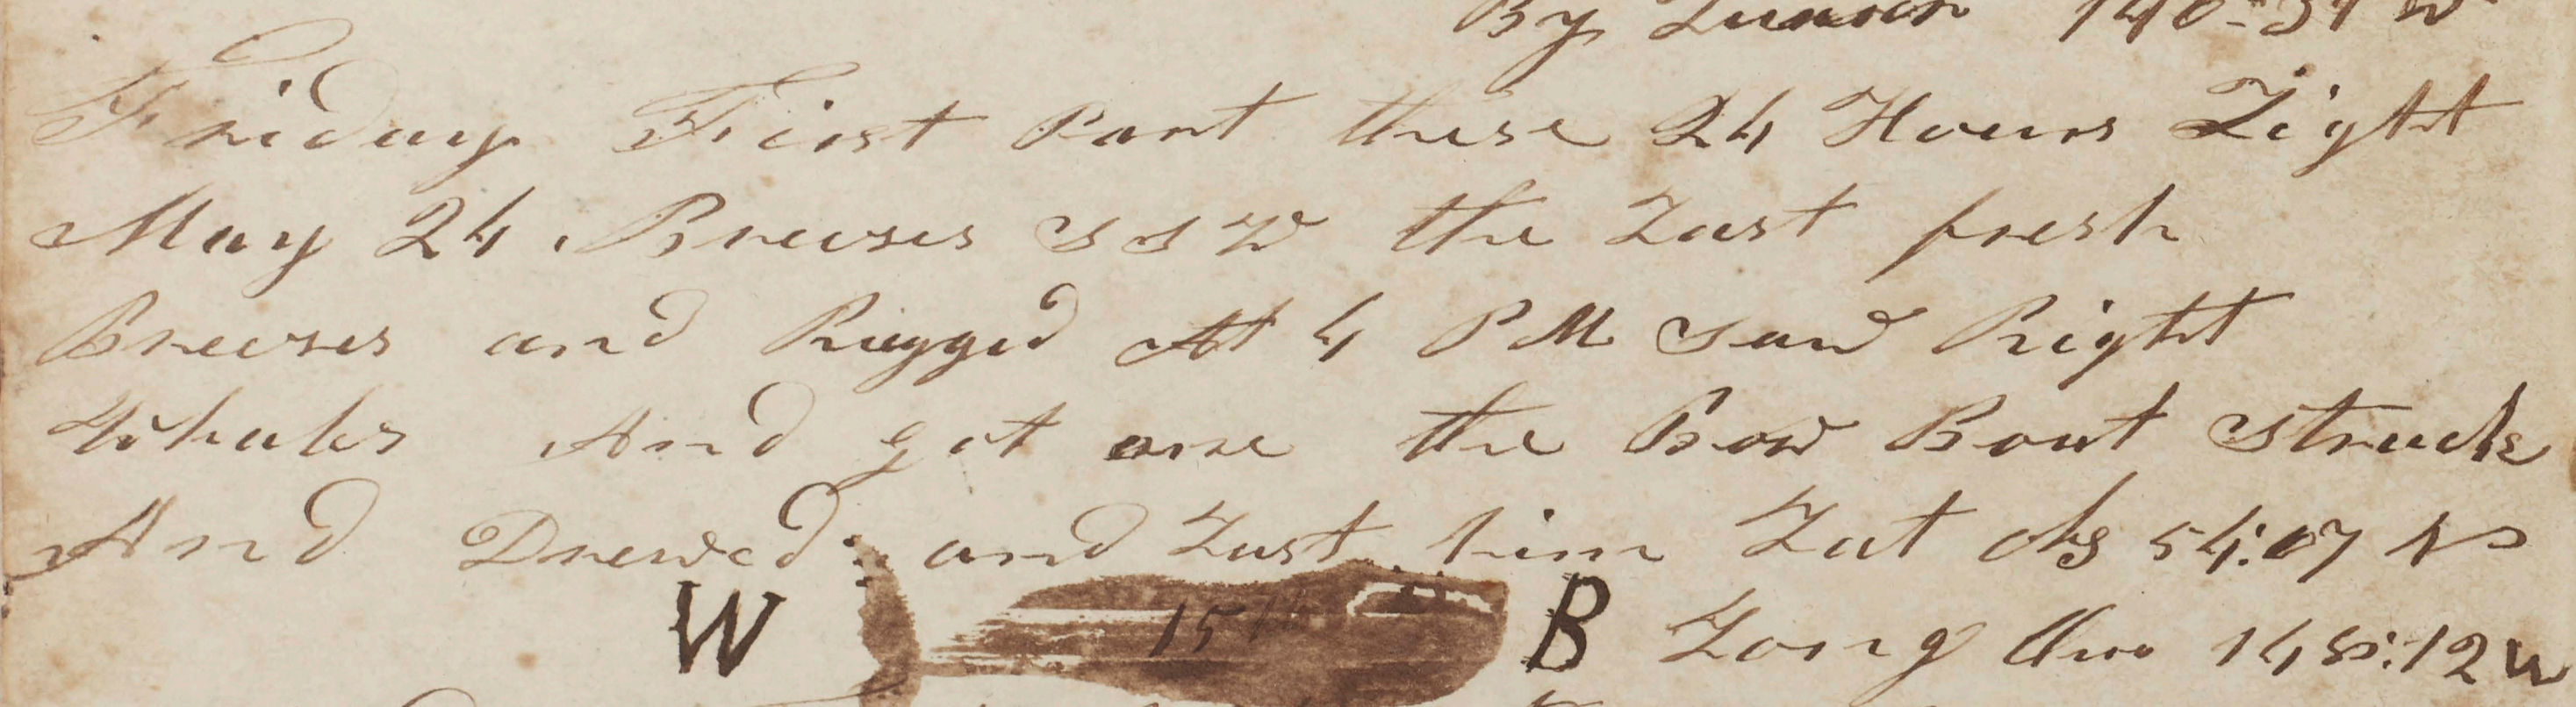 By Lunar 140=37 W
Friday First Part these 24 Hours Light
May 24 Breeses S S W the Last fresh
Breeses and Rugged At 4 PM Saw Right
Whales And got one the Bow Boat Struck
And Drewed and Lost him Lat Obs 54:07 N
W 15 B Long Chro 148:12 W